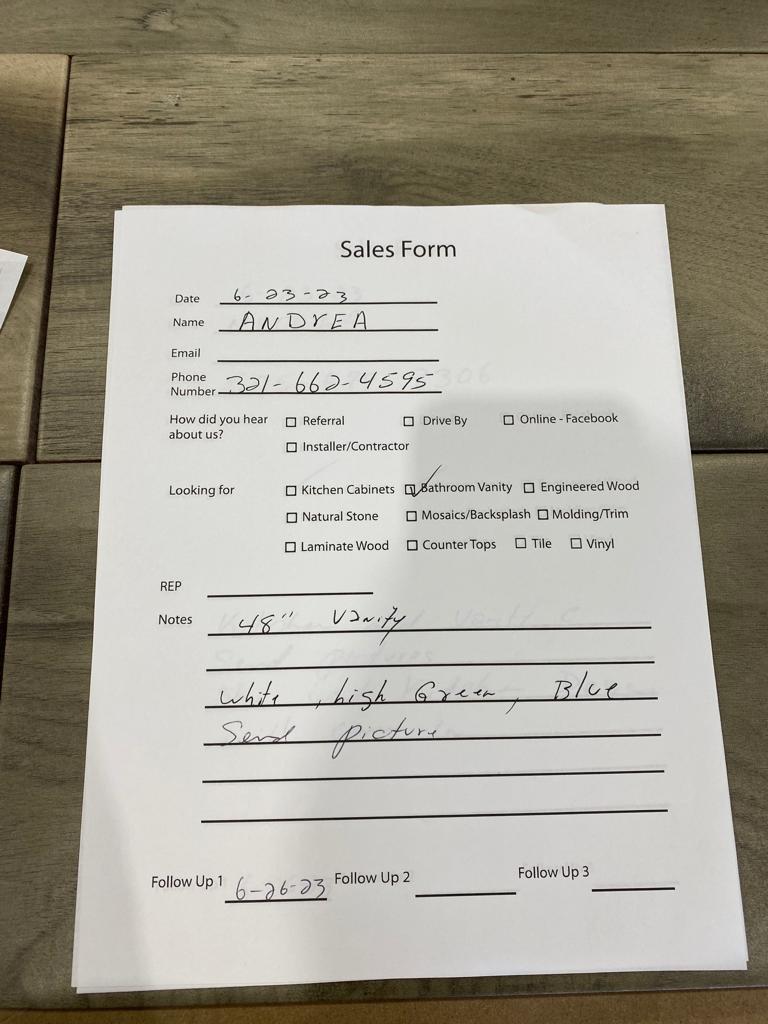 Sales Form
Date 6-23-23
Name ANDrEA
Email
Phone Number 321-662-4595
How did you hear about us? ☐ Referral ☐ Drive By ☐ Online - Facebook
☐ Installer/Contractor
Looking for ☐ Kitchen Cabinets ☑ Bathroom Vanity ☐ Engineered Wood
☐ Natural Stone ☐ Mosaics/Backsplash ☐ Molding/Trim
☐ Laminate Wood ☐ Counter Tops ☐ Tile ☐ Vinyl
REP
Notes 48" Vanity
White, high Green, Blue
Send picture
Follow Up 1 6-26-23 Follow Up 2 Follow Up 3